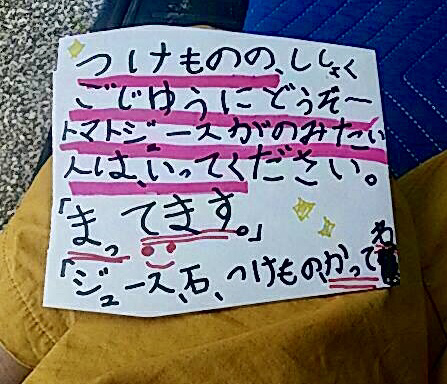 つけものの、ししゃく
ごじゆうにどうぞー
トマトジュースがのみたい
人は、いってください。
「まってます。」
「ジュース、石、つけものかってね